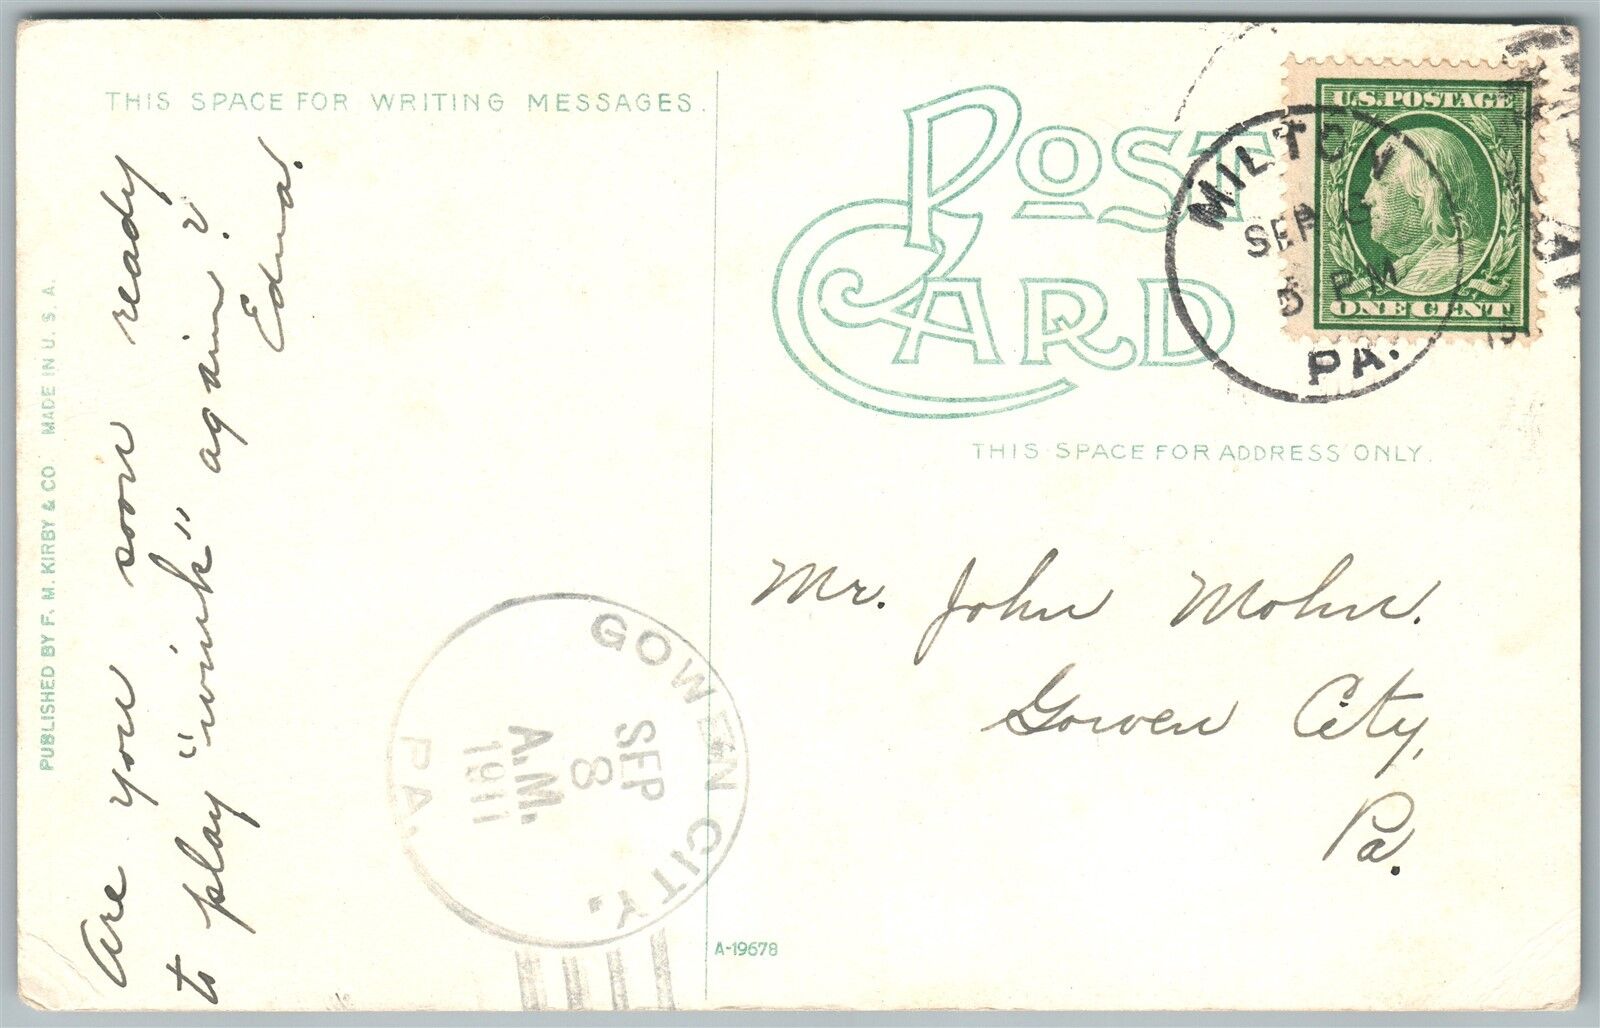 THIS SPACE FOR WRITING MESSAGES.
Are you soon ready
to play "wink" again?
Edna.
PUBLISHED BY F. M. KIRBY & CO. MADE IN U. S. A.
POST
CARD
THIS SPACE FOR ADDRESS ONLY.
U.S. POSTAGE
ONE CENT
MILTON
SEP
PM
PA.
Mr. John Mohn.
Gowen City,
Pa.
GOWEN CITY.
SEP
8
A.M.
1911
PA.
A-19678